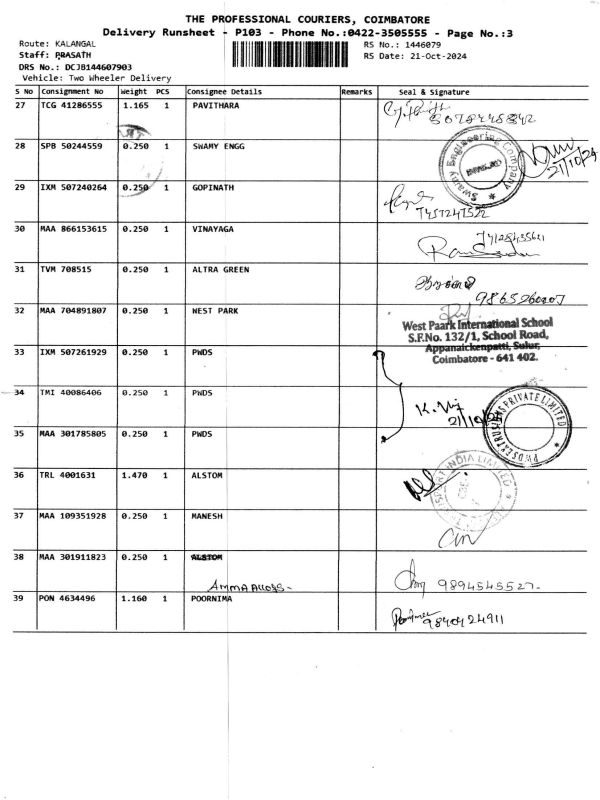 THE PROFESSIONAL COURIERS, COIMBATORE
Delivery Runsheet - P103 - Phone No.:0422-3505555 - Page No.:3
Route: KALANGAL
RS No.: 1446079
Staff: PRASATH
RS Date: 21-Oct-2024
DRS No.: DCJB144607903
Vehicle: Two Wheeler Delivery
S No Consignment No Weight PCS Consignee Details Remarks Seal & Signature
27 TCG 41286555 1.165 1 PAVITHARA
28 SPB 50244559 0.250 1 SWAMY ENGG Swamy Engineering Company 21/10/24
29 IXM 507240264 0.250 1 GOPINATH
30 MAA 866153615 0.250 1 VINAYAGA
31 TVM 708515 0.250 1 ALTRA GREEN
32 MAA 704891807 0.250 1 WEST PARK
West Paark International School
S.F.No. 132/1, School Road,
Appanaickenpatti, Sulur,
Coimbatore - 641 402.
33 IXM 507261929 0.250 1 PWDS
34 TMI 40086406 0.250 1 PWDS
35 MAA 301785805 0.250 1 PWDS
PRIVATE LIMITED
36 TRL 4001631 1.470 1 ALSTOM
INDIA LIMITED
37 MAA 109351928 0.250 1 MANESH
38 MAA 301911823 0.250 1 ALSTOM
AMMA ALLOYS- 9894545527-
39 PON 4634496 1.160 1 POORNIMA
9840424911